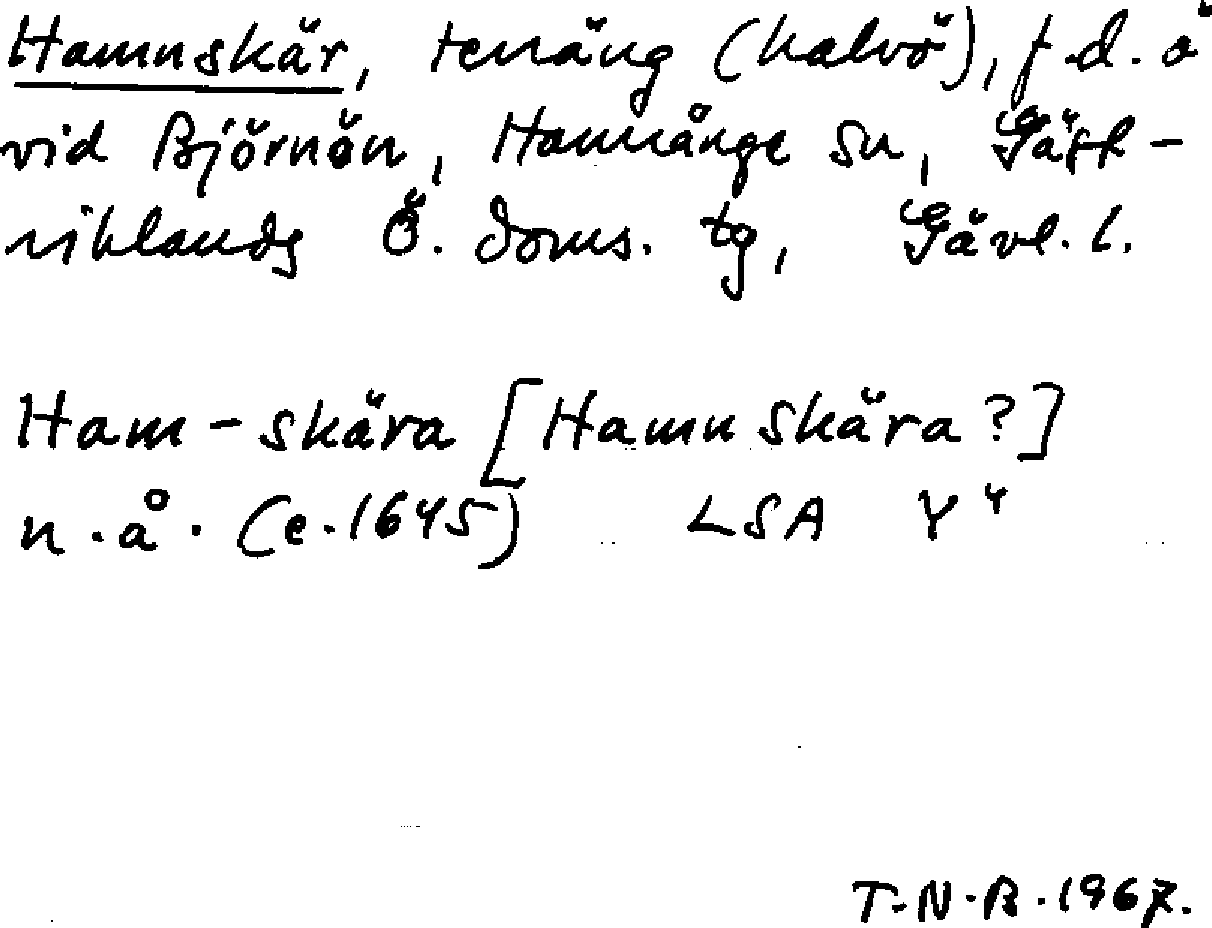 Hamnskär, terräng (halvö), f.d. ö
vid Björnön, Hamrånge sn, Gäst-
riklands Ö. doms. tg, Gävl. l.
Ham-skära [Hamnskära?]
n.å. (c. 1645) LSA Y 4
T.N.B. 1967.